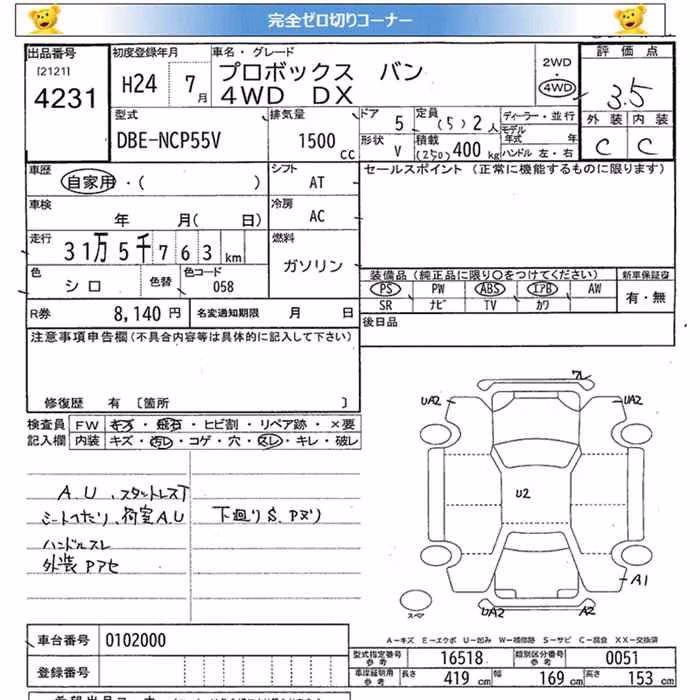 完全ゼロ切りコーナー
出品番号 初度登録年月 車名・グレード 評価点
[2121] H24 7月 プロボックス バン 2WD・4WD 3.5
4231 4WD DX
外装 内装
C C
型式 排気量 ドア 5 定員 (5)2人 ディーラー・並行
DBE-NCP55V 1500cc 形状 V 積載 (250)400kg モデル年式 年
ハンドル 左・右
車歴 自家用・( ) シフト AT セールスポイント(正常に機能するものに限ります)
車検 年 月( 日) 冷房 AC
走行 31万5千763km 燃料 ガソリン
色 シロ 色替 色コード 058
装備品(純正品に限り○をつけてください) 新車保証書
PS PW ABS エアB AW 有・無
SR ナビ TV カワ
R券 8,140円 名変通知期限 月 日 後日品
注意事項申告欄(不具合内容等は具体的に記入して下さい)
修復歴 有[箇所 ]
検査員 FW キズ・飛石・ヒビ割・リペア跡・×要
記入欄 内装 キズ・汚レ・コゲ・穴・スレ・キレ・破レ
A.U、スタットレスT
シートヘたり、荷室A.U 下廻りS、Pヌリ
ハンドルスレ
外装Pアセ
ワレ
UA2 UA2
U2
A1
スペア UA2 A2
A-キズ E-エクボ U-凹み W-補修跡 S-サビ C-腐食 XX-交換済
車台番号 0102000
型式指定番号 参考 16518 類別区分番号 参考 0051
登録番号
車庫証明用 参考 長さ 419cm 幅 169cm 高さ 153cm